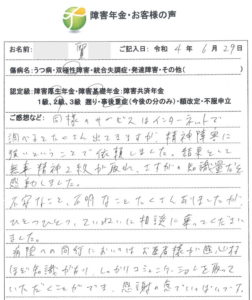 障害年金・お客様の声
お名前: 様 ご記入日: 令和 4 年 6 月 29 日
傷病名: うつ病・双極性障害・統合失調症・発達障害・その他( )
認定級: 障害厚生年金・障害基礎年金・障害共済年金
1級、2級、3級 遡り・事後重症(今後の分のみ)・額改定・不服申立
ご感想など: 同様のサービスはインターネットで
調べるとたくさん出てきますが、精神障害に
強いということで依頼しました。結果として
無事精神2級が取れ、さすがの知識量だと
感動しました。
不安なこと、不明なことたくさんありましたが、
ひとつひとつ、ていねいに相談に乗ってくださいま
した。
病院への同行においてはお医者様が感心する
ほど知識があり、しっかりコミュニケーションを取って
いただくことができ、感謝の念でいっぱいです。